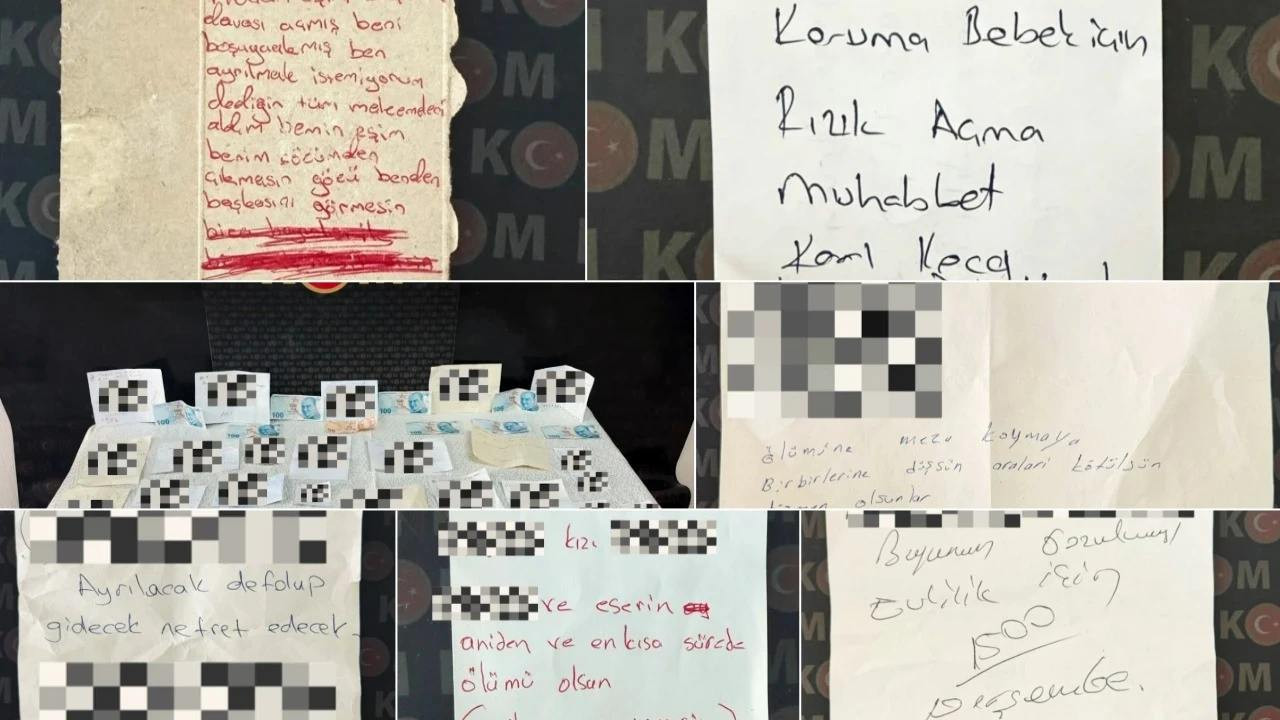 davası açmış beni
boşuyacakmış ben
ayrılmak istemiyorum
dediğin tüm
aldım benim eşim
benim sözümden
çıkmasın gözü benden
başkasını görmesin
Koruma Bebek için
Rızık Açma
Muhabbet
Karı Koca
KOM
100
100
100
ölümüne meza koymaya
Birbirlerine düşsün araları kötülşün
olsunlar
Ayrılacak defolup
gidecek nefret edecek.
kızı
ve eserin
aniden ve en kısa sürede
ölümü olsun
Buyunun bozulması
Evlilik için
1500
Perşembe.